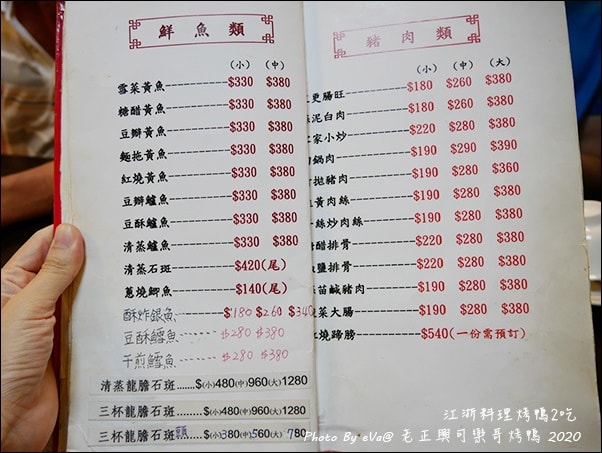 鮮魚類
(小) (中)
雪菜黃魚 $330 $380
糖醋黃魚 $330 $380
豆瓣黃魚 $330 $380
麵拖黃魚 $330 $380
紅燒黃魚 $330 $380
豆瓣鱸魚 $330 $380
豆酥鱸魚 $330 $380
清蒸鱸魚 $330 $380
清蒸石斑 $420(尾)
蔥燒鯽魚 $140(尾)
酥炸銀魚 $180 $260 $340
豆酥鱈魚 $280 $380
干煎鱈魚 $280 $380
清蒸龍膽石斑......$(小)480(中)960(大)1280
三杯龍膽石斑......$(小)480(中)960(大)1280
三杯龍膽石斑頭....$(小)380(中)560(大)780
豬肉類
(小) (中) (大)
更腸旺 $180 $260 $380
泥白肉 $180 $260 $380
家小炒 $220 $280 $380
鍋肉 $190 $290 $390
拋豬肉 $190 $260 $360
黃肉絲 $190 $280 $380
絲炒肉絲 $190 $280 $380
醋排骨 $220 $280 $380
鹽排骨 $220 $280 $380
苗鹹豬肉 $190 $280 $380
菜大腸 $190 $280 $380
燒蹄膀 $540(一份需預訂)
江浙料理烤鴨2吃
Photo By eVa@ 老正興可樂哥烤鴨 2020